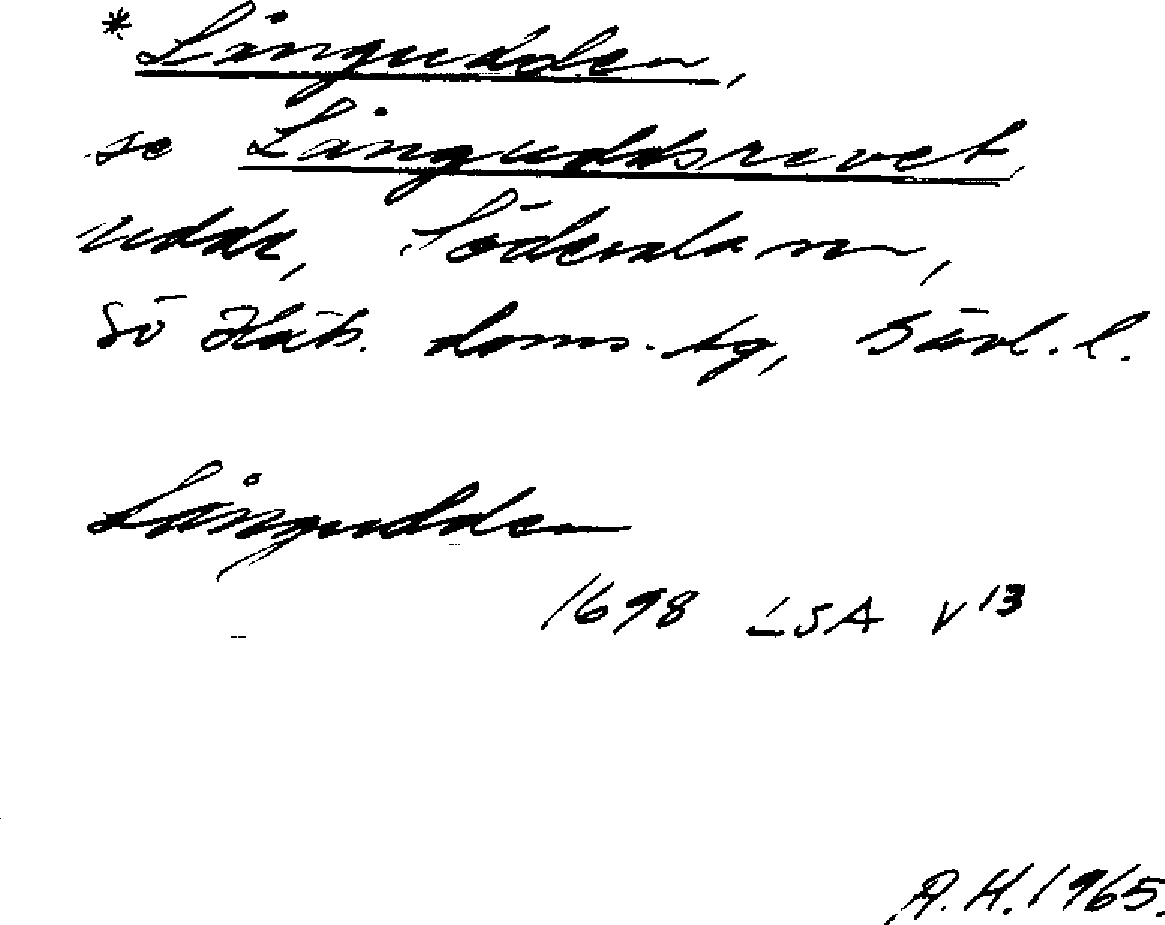 *Långudden,
se Långuddsrevet,
udde, Söderala sn,
Sö Häls. doms. tg, Gävl. l.
Långudden
1698 LSA V13
A.H. 1965.